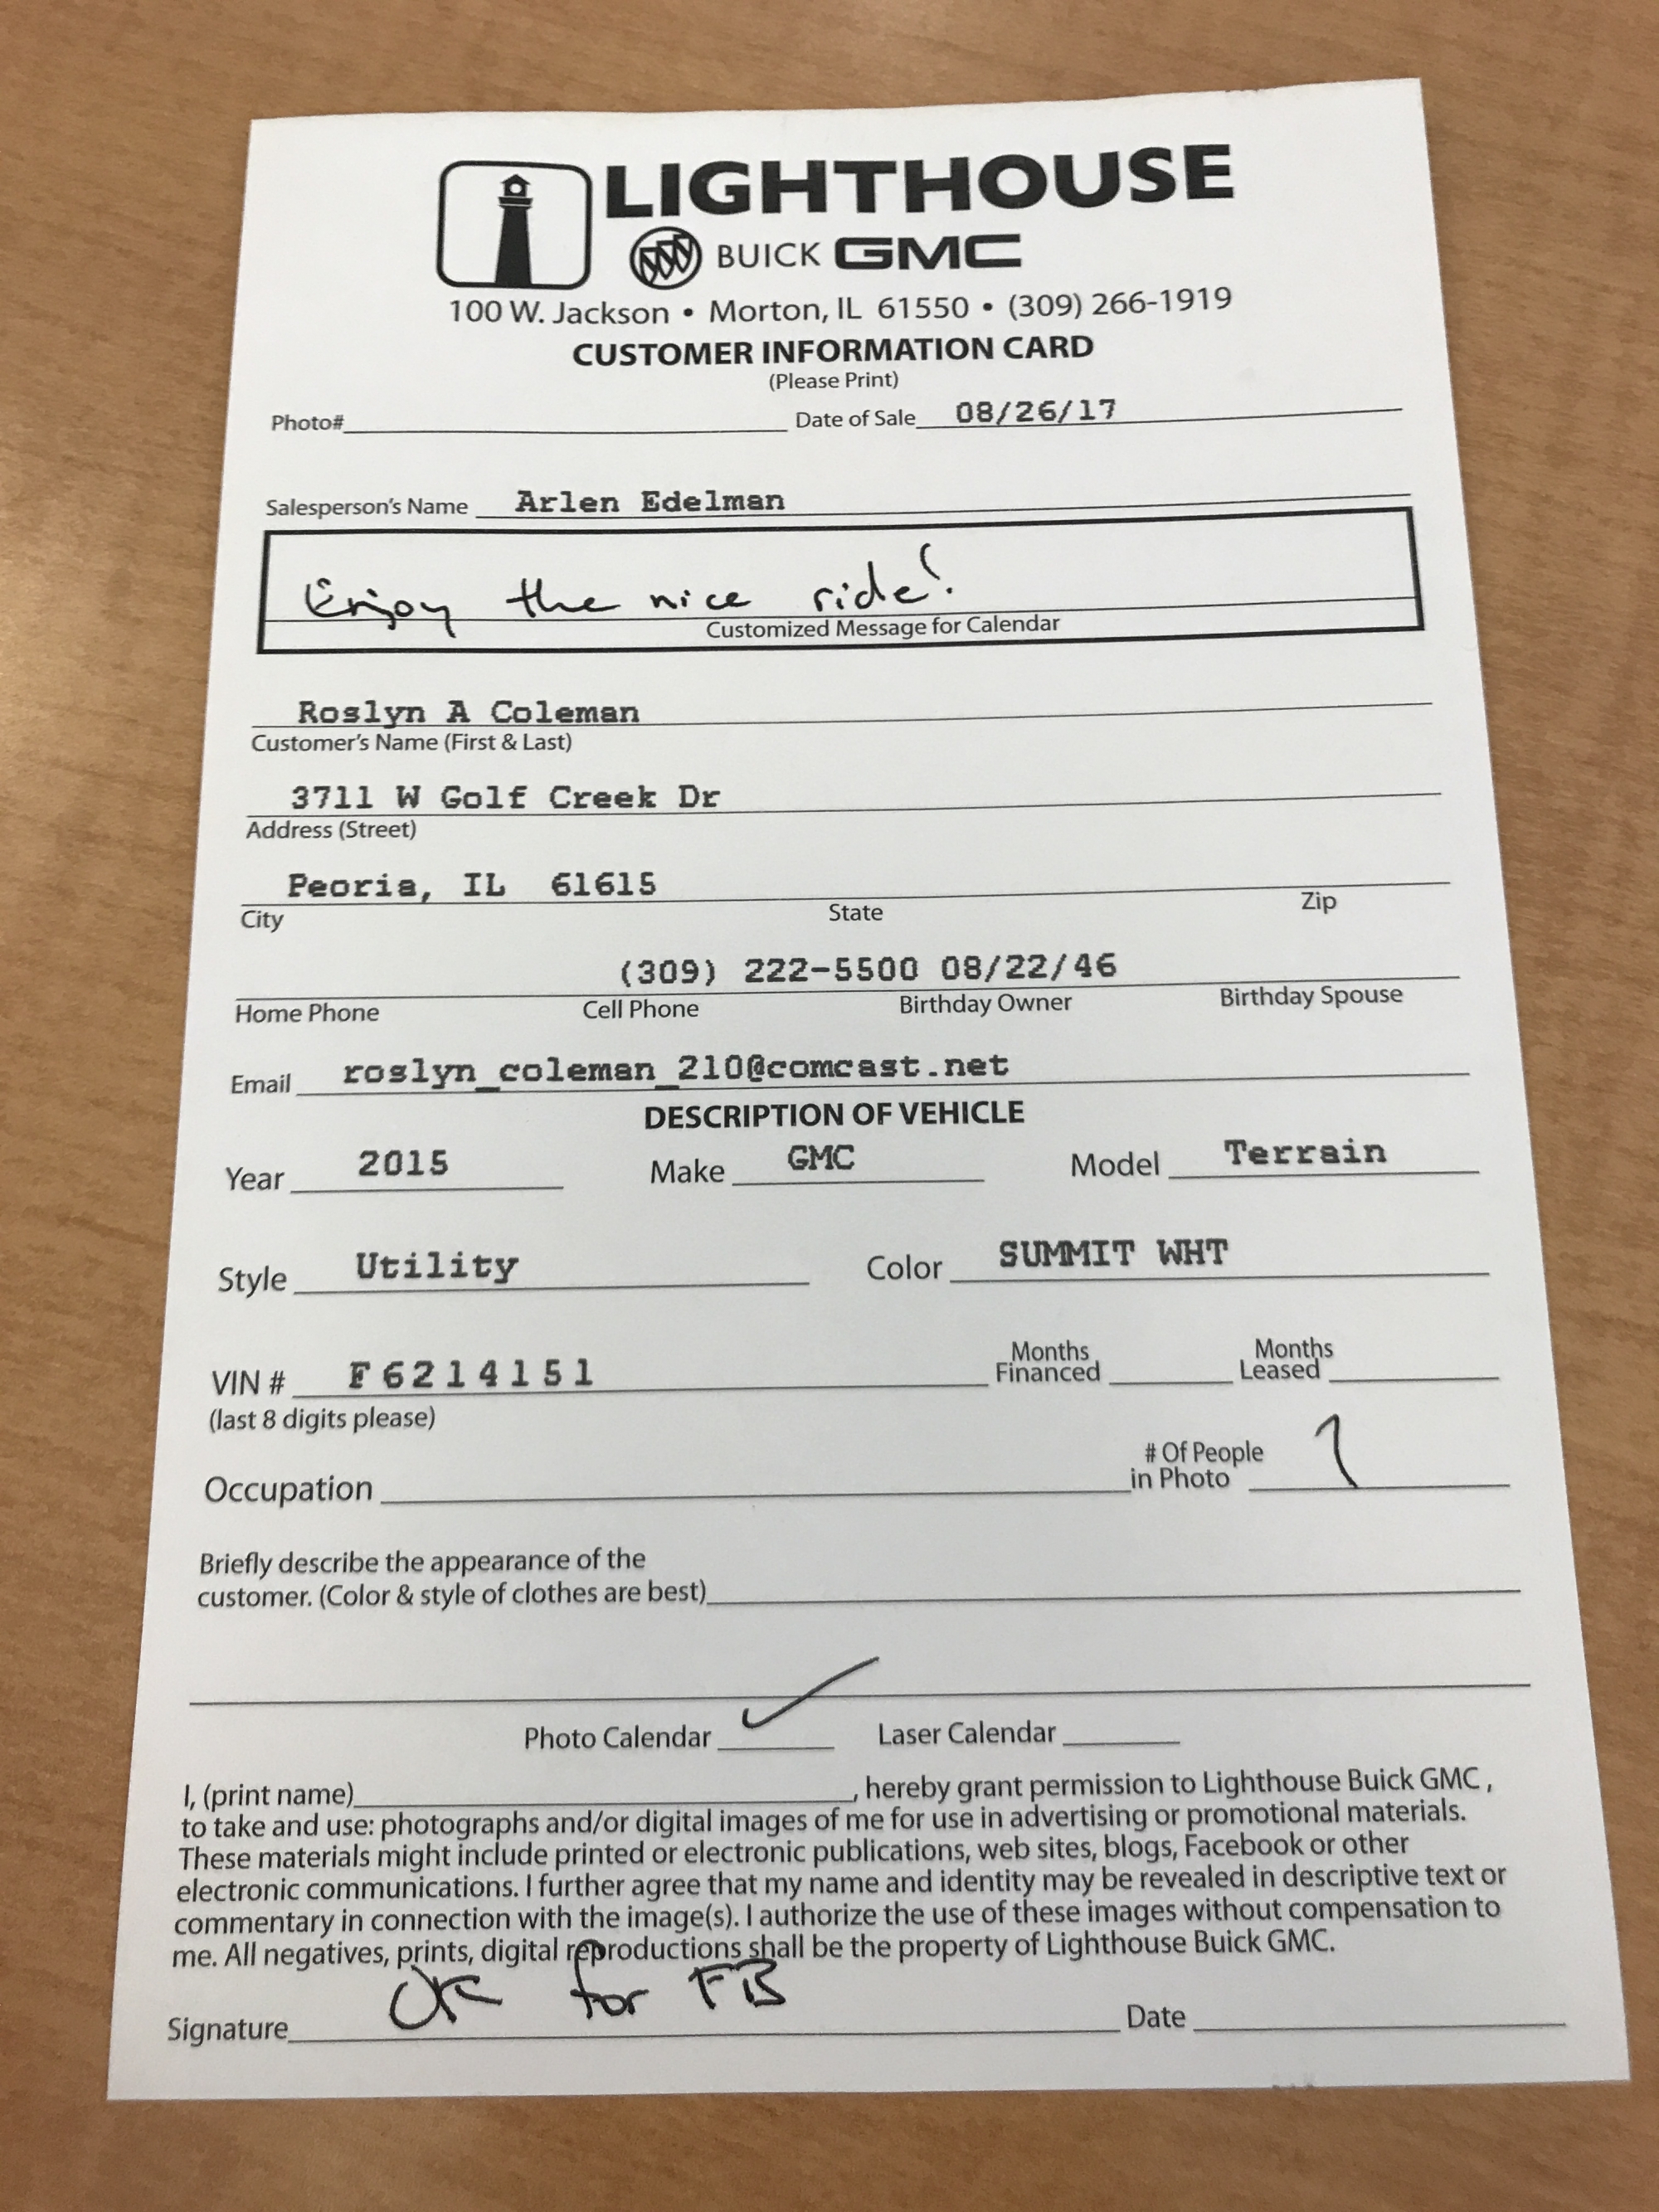 LIGHTHOUSE
BUICK GMC
100 W. Jackson • Morton, IL 61550 • (309) 266-1919
CUSTOMER INFORMATION CARD
(Please Print)
Photo# Date of Sale 08/26/17
Salesperson's Name Arlen Edelman
Enjoy the nice ride!
Customized Message for Calendar
Roslyn A Coleman
Customer's Name (First & Last)
3711 W Golf Creek Dr
Address (Street)
Peoria, IL 61615
City State Zip
(309) 222-5500 08/22/46
Home Phone Cell Phone Birthday Owner Birthday Spouse
Email roslyn_coleman_210@comcast.net
DESCRIPTION OF VEHICLE
Year 2015 Make GMC Model Terrain
Style Utility Color SUMMIT WHT
VIN # F6214151 Months Financed Months Leased
(last 8 digits please)
Occupation # Of People in Photo 1
Briefly describe the appearance of the
customer. (Color & style of clothes are best)
Photo Calendar ✓ Laser Calendar
I, (print name) , hereby grant permission to Lighthouse Buick GMC ,
to take and use: photographs and/or digital images of me for use in advertising or promotional materials.
These materials might include printed or electronic publications, web sites, blogs, Facebook or other
electronic communications. I further agree that my name and identity may be revealed in descriptive text or
commentary in connection with the image(s). I authorize the use of these images without compensation to
me. All negatives, prints, digital reproductions shall be the property of Lighthouse Buick GMC.
Signature OK for FB Date